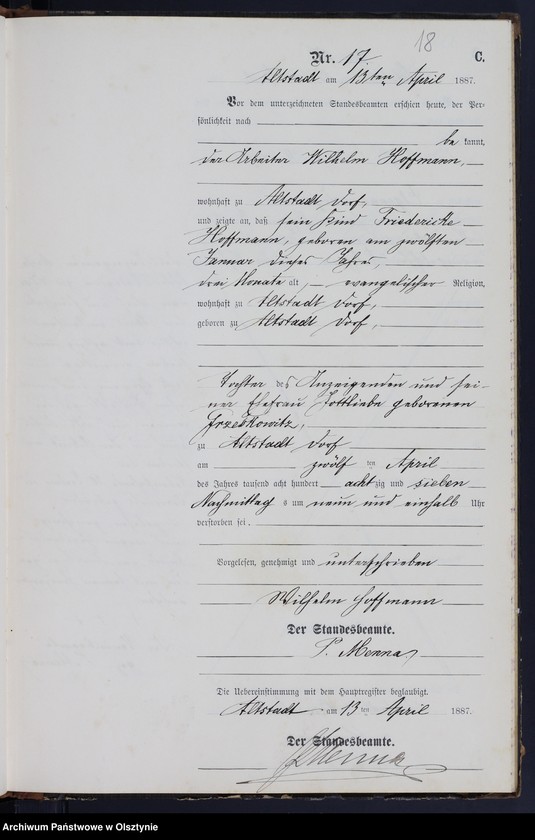 18
Nr. 17. C.
Altstadt am 13ten April 1887.
Vor dem unterzeichneten Standesbeamten erschien heute, der Per-
sönlichkeit nach
be kannt,
der Arbeiter Wilhelm Hoffmann,
wohnhaft zu Altstadt Dorf,
und zeigte an, daß sein Kind Friedericke
Hoffmann, geboren am zwölften
Januar dieses Jahres,
drei Monate alt, evangelischer Religion,
wohnhaft zu Altstadt Dorf,
geboren zu Altstadt Dorf,
Tochter des Anzeigenden und sei-
ner Ehefrau Gottliebe geborenen
zu Altstadt Dorf
am zwölf ten April
des Jahres tausend acht hundert achtzig und sieben
Nachmittag s um neun und einhalb Uhr
verstorben sei.
Vorgelesen, genehmigt und unterschrieben
Wilhelm Hoffmann
Der Standesbeamte.
Menna
Die Uebereinstimmung mit dem Hauptregister beglaubigt.
Altstadt am 13 ten April 1887.
Der Standesbeamte.
Menna
Archiwum Państwowe w Olsztynie